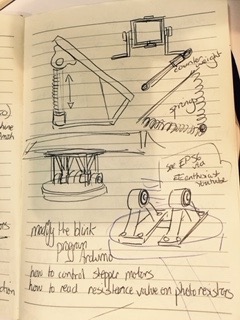 counter
weight
spring
see EP56
via
youtube
modify the blink
program
Arduino
how to control stepper motors
how to read resistance value on photoresistors